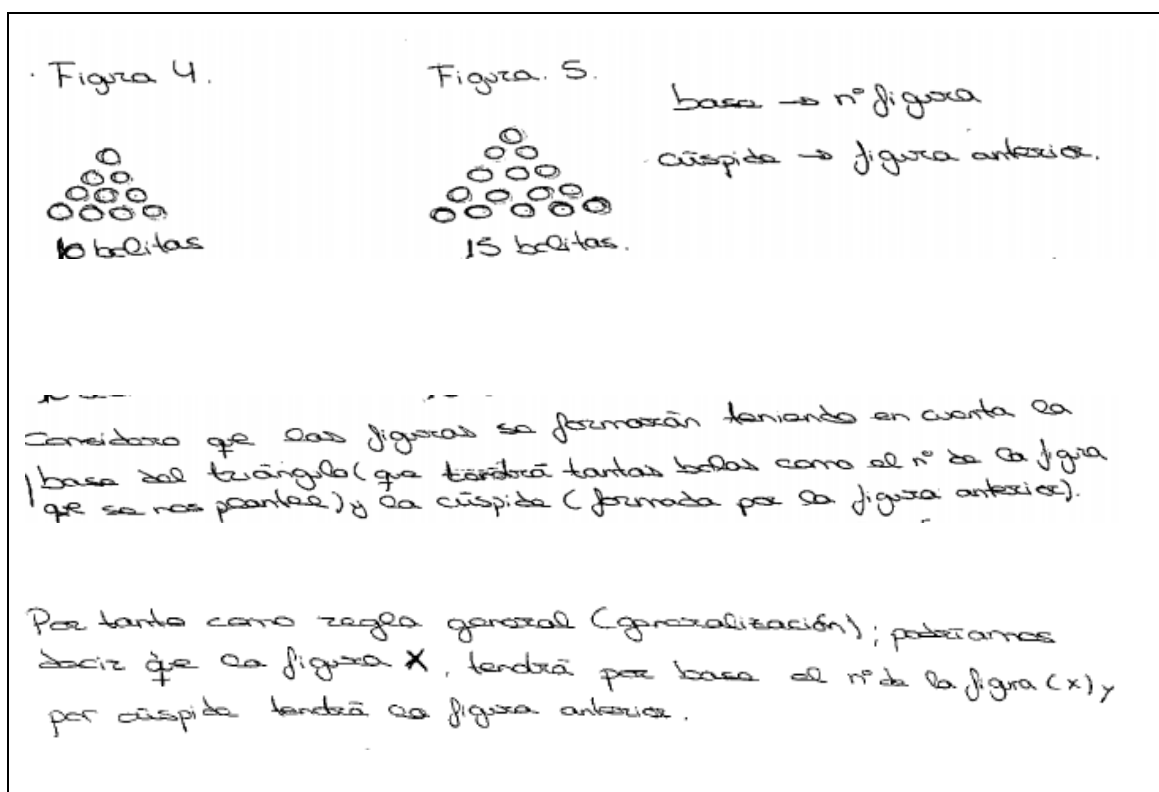 Figura 4.
Figura. 5.
base → nº figura
cúspide → figura anterior.
10 bolitas
15 bolitas.
Considero que las figuras se formarán teniendo en cuenta la
base del triángulo (que tendrá tantas bolas como el nº de la figura
que se nos plantee) y la cúspide (formada por la figura anterior).
Por tanto como regla general (generalización); podríamos
decir que la figura X, tendrá por base el nº de la figura (x) y
por cúspide tendrá la figura anterior.